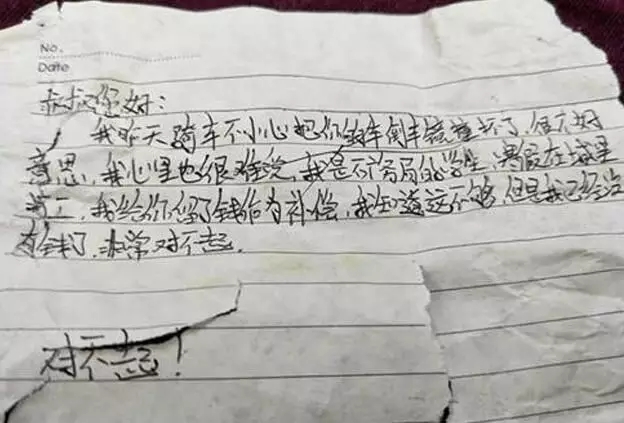 No.
Date
叔叔您好:
我昨天骑车不小心把你的车倒车镜撞坏了,很不好
意思,我心里也很难受,我是不局的学生,暑假在城里
打工,我给你留了钱作为补偿,我知道这不够,但是我已经没
有钱了,非常对不起.
对不起!